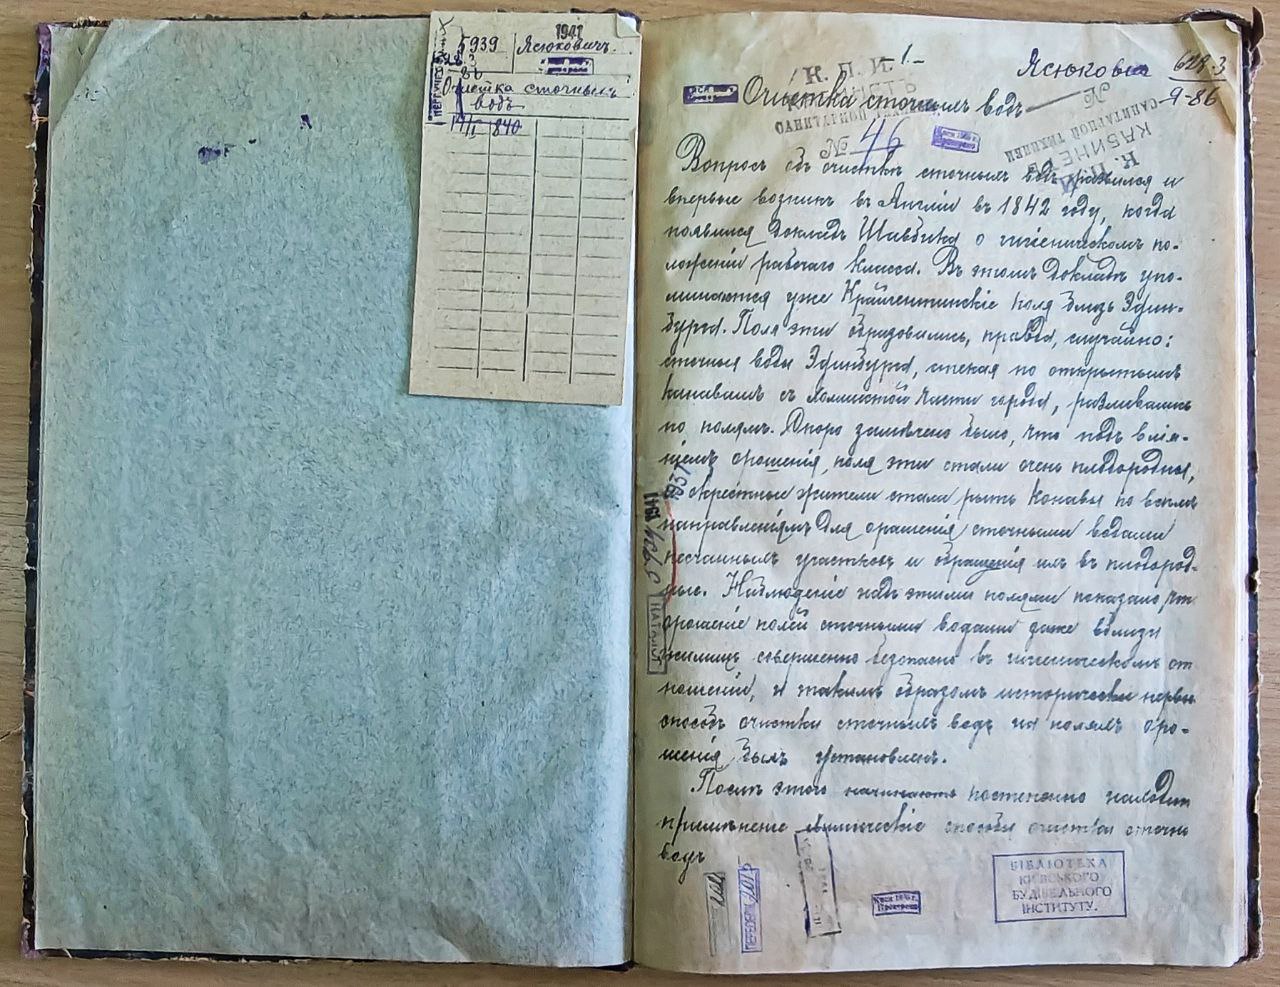 1941
5939 Ясюковичъ
628.3
9-86
Очистка сточныхъ
водъ
840
К. П. И.
-1-
Ясюкович 628.3
9-86
Очистка сточныхъ водъ
КАБИНЕТЪ
САНИТАРНОЙ ТЕХНИКИ
№ 46
К. П. И.
КАБИНЕТЪ
САНИТАРНОЙ ТЕХНИКИ
№
Вопросъ объ очисткѣ сточныхъ водъ развился и
впервые возникъ въ Англіи въ 1842 году, когда
появился докладъ Шадвика о гигіеническомъ по-
ложеніи рабочаго класса. Въ этомъ докладѣ упо-
минаются уже Крайгентинскіе поля близъ Эдин-
бурга. Поля эти образовались, правда, случайно:
сточныя воды Эдинбурга, стекая по открытымъ
канавамъ съ холмистой части города, разливались
по полямъ. Скоро замѣчено было, что подъ влія-
ніемъ орошенія, поля эти стали очень плодородны,
окрестные жители стали рыть канавы по всѣмъ
направленіямъ для орошенія сточными водами
песчаныхъ участковъ и обращенія ихъ въ плодород-
ные. Наблюденіе надъ этими полями показало, что
орошеніе полей сточными водами даже вблизи
жилищъ совершенно безопасно въ гигіеническомъ от
ношеніи, и такимъ образомъ исторически первы
способъ очистки сточныхъ водъ на поляхъ оро-
шенія былъ установленъ.
Послѣ этого начинаютъ постепенно находит
примѣненіе химическіе способы очистки сточны
водъ
1937
1941
БІБЛІОТЕКА
КИЇВСЬКОГО
БУДІВЕЛЬНОГО
ІНСТИТУТУ.